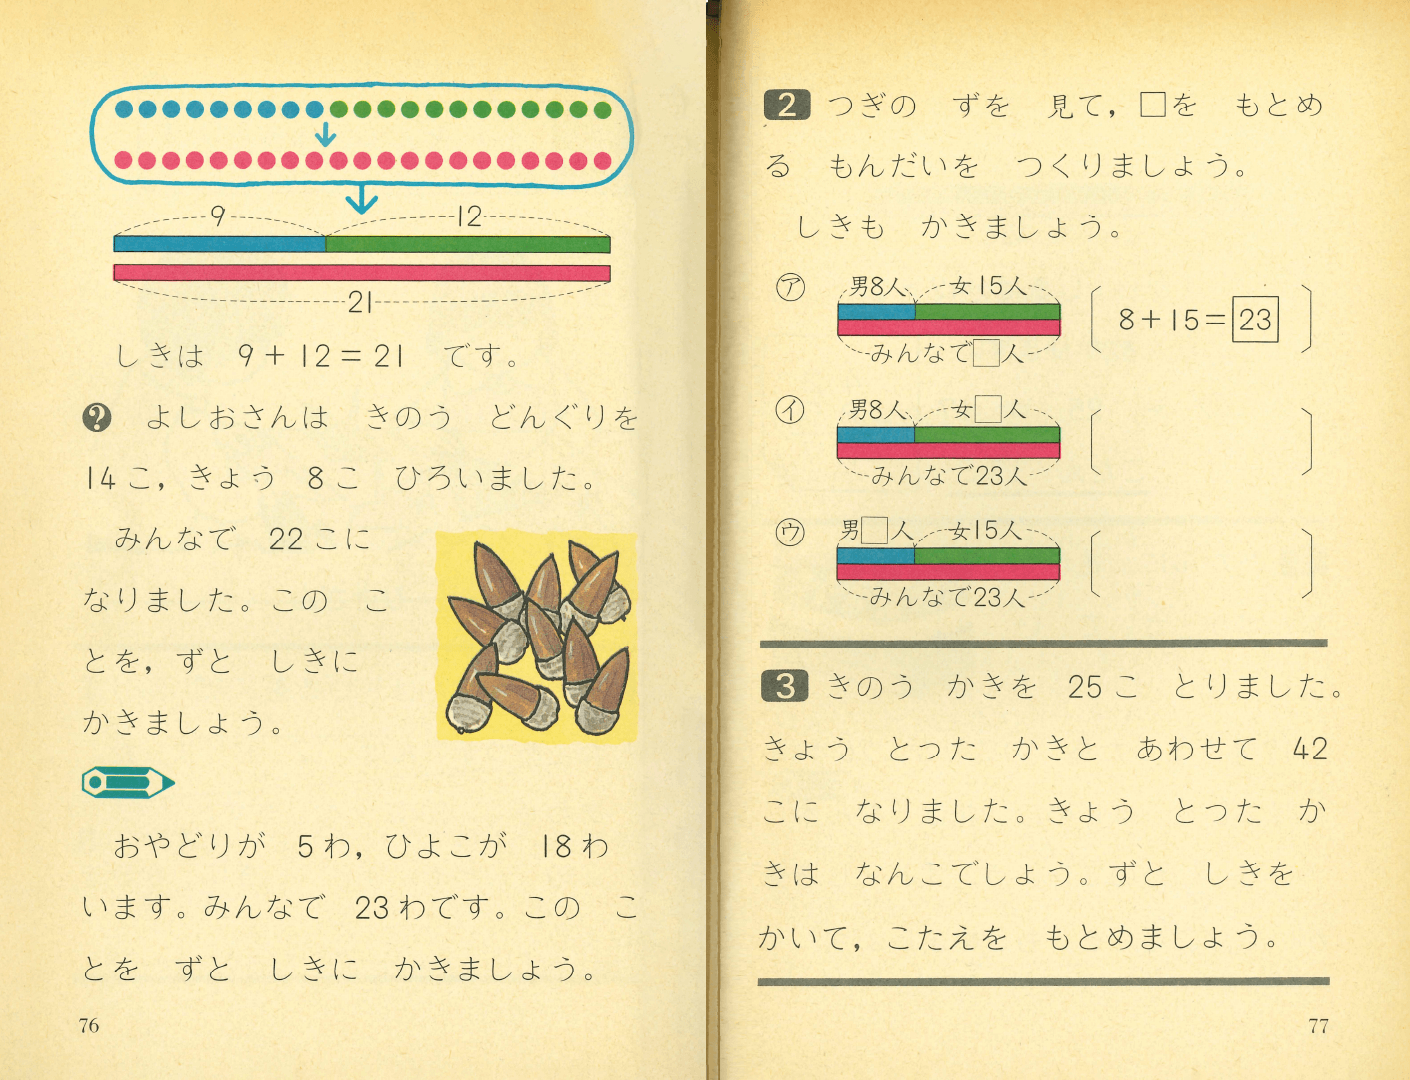 9 12
21
しきは 9+12=21 です。
? よしおさんは きのう どんぐりを
14こ，きょう 8こ ひろいました。
みんなで 22こに
なりました。この こ
とを，ずと しきに
かきましょう。
おやどりが 5わ，ひよこが 18わ
います。みんなで 23わです。この こ
とを ずと しきに かきましょう。
76
2 つぎの ずを 見て，□を もとめ
る もんだいを つくりましょう。
しきも かきましょう。
㋐ 男8人 女15人
8+15=23
みんなで□人
㋑ 男8人 女□人
みんなで23人
㋒ 男□人 女15人
みんなで23人
3 きのう かきを 25こ とりました。
きょう とった かきと あわせて 42
こに なりました。きょう とった か
きは なんこでしょう。ずと しきを
かいて，こたえを もとめましょう。
77